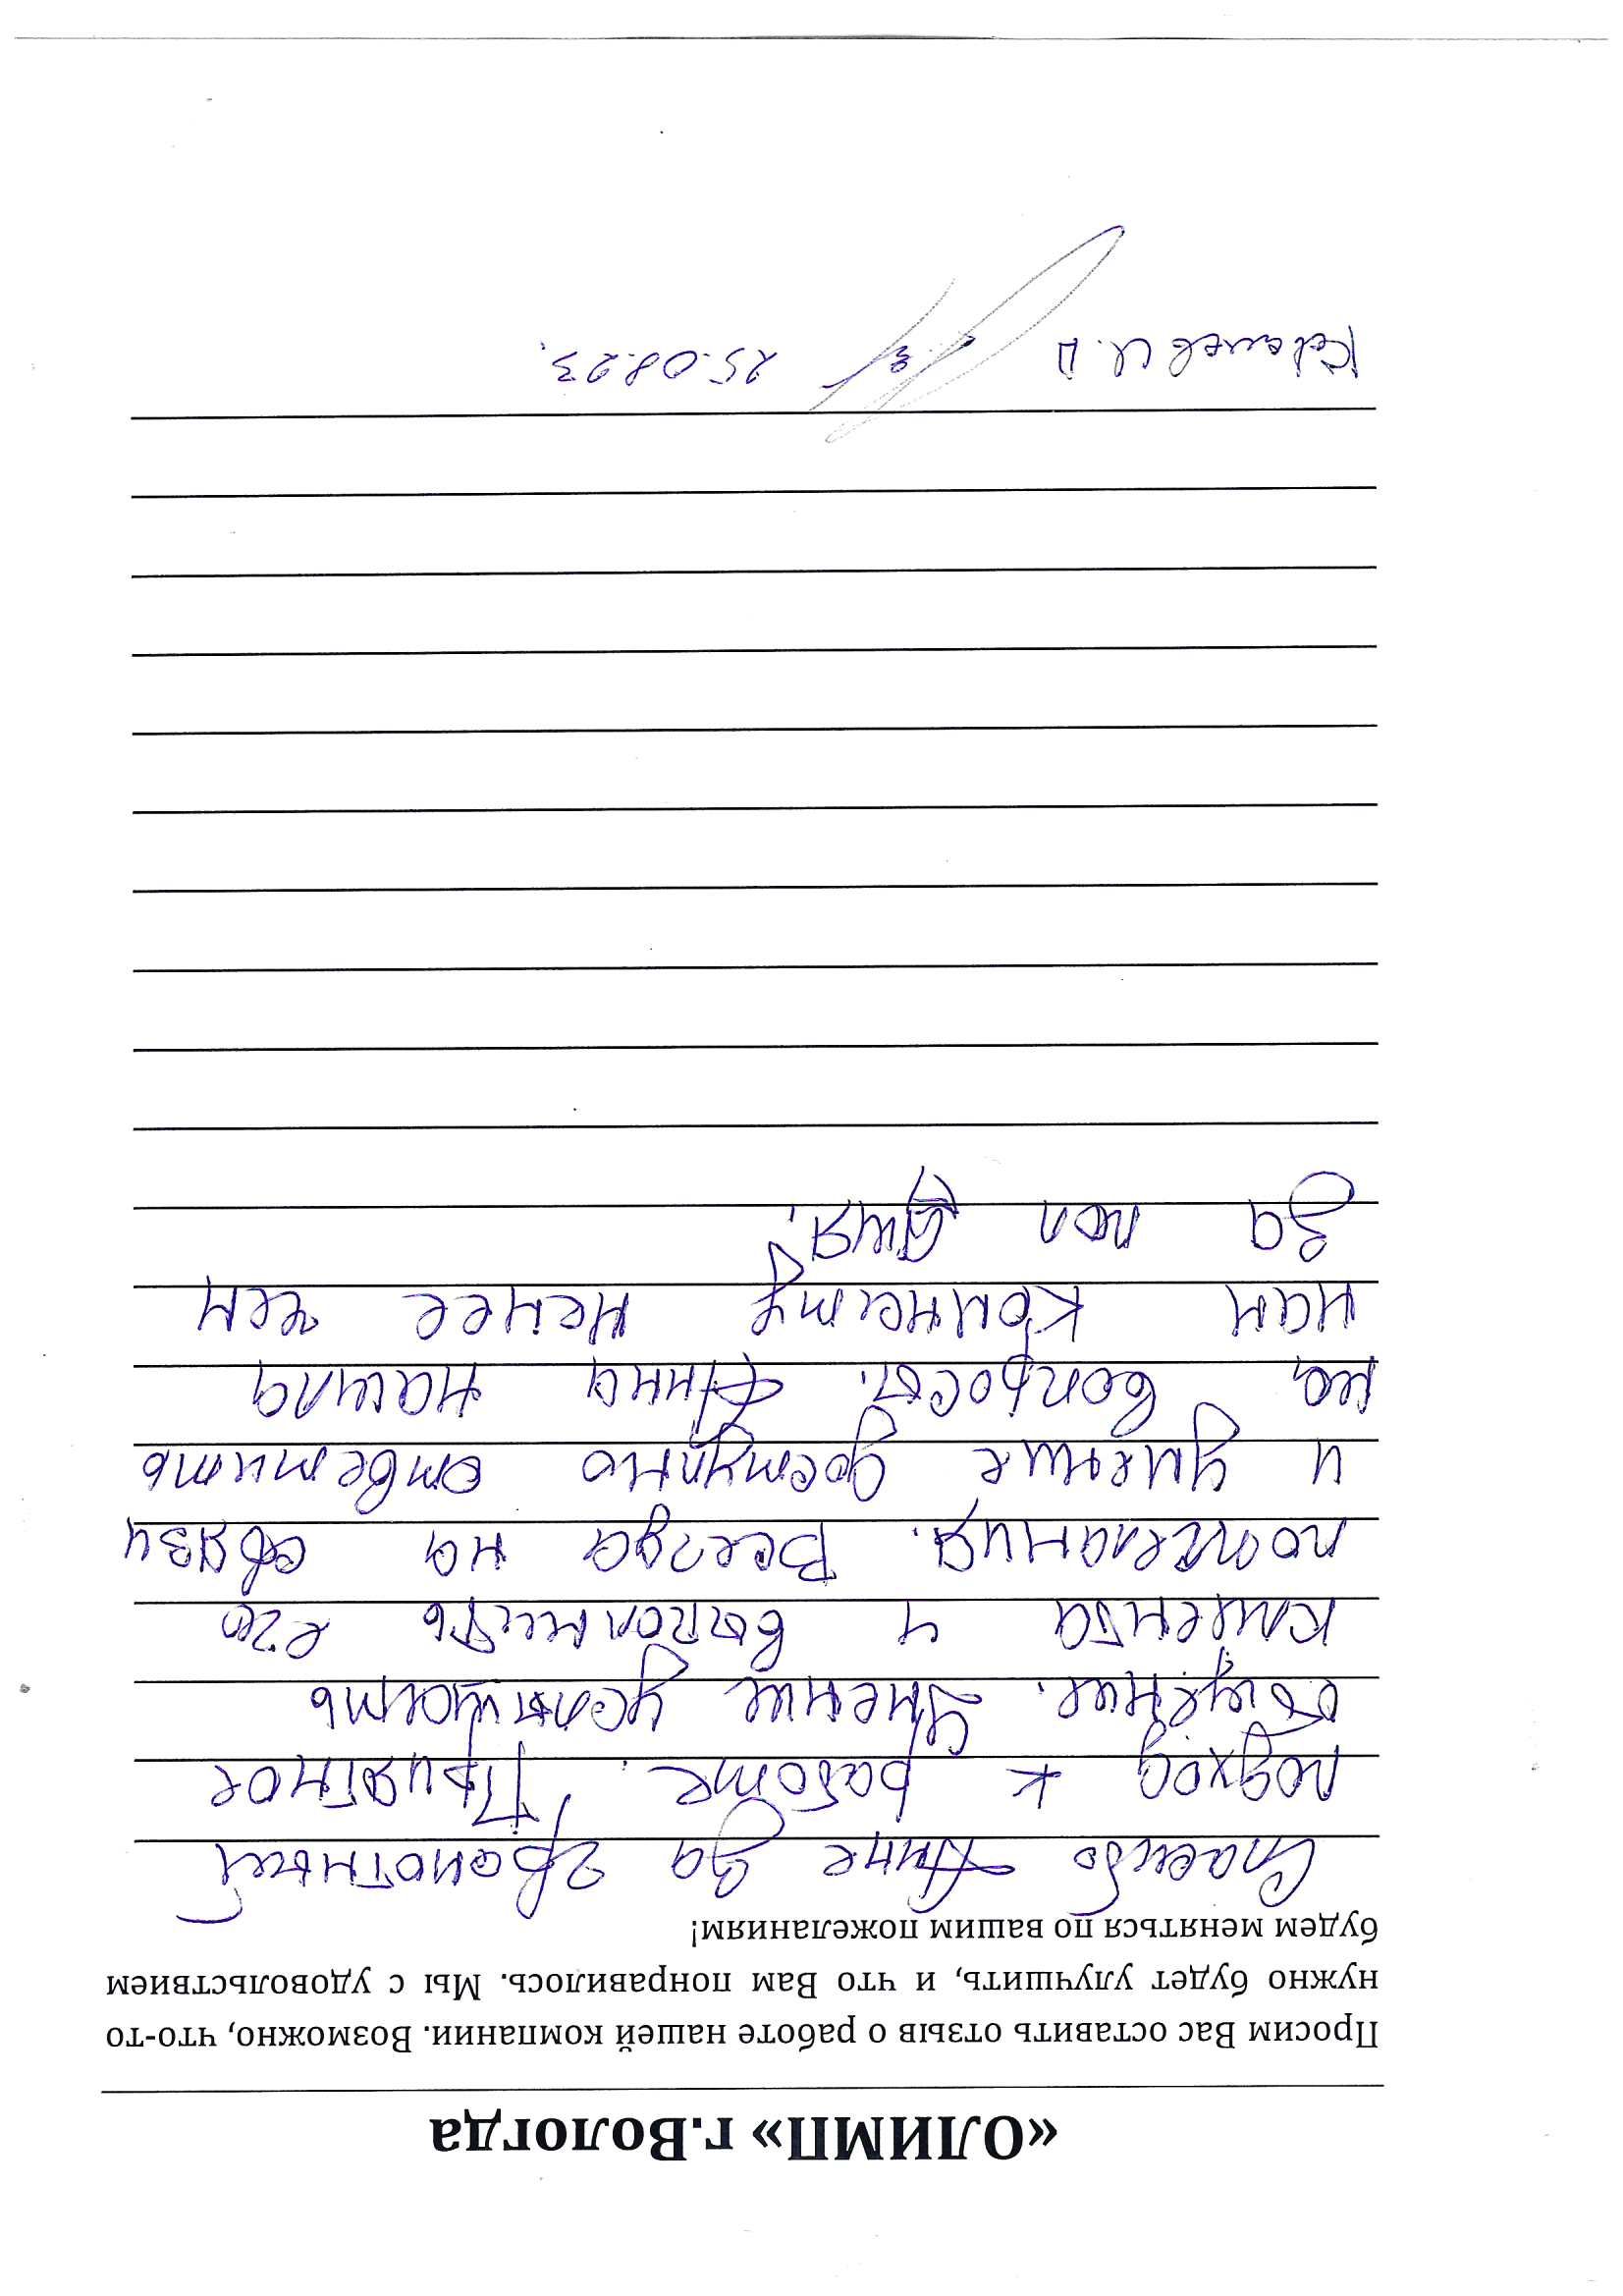 «ОЛИМП» г.Вологда
Просим Вас оставить отзыв о работе нашей компании. Возможно, что-то
нужно будет улучшить, и что Вам понравилось. Мы с удовольствием
будем меняться по вашим пожеланиям!
Спасибо Анне за грамотный
подход к работе. Приятное
общение. Умение услышать
клиента и выполнить его
пожелания. Всегда на связи
и умение доступно ответить
на вопросы. Анна нашла
нам комнату менее чем
за пол дня.
И. П 25.08.23.